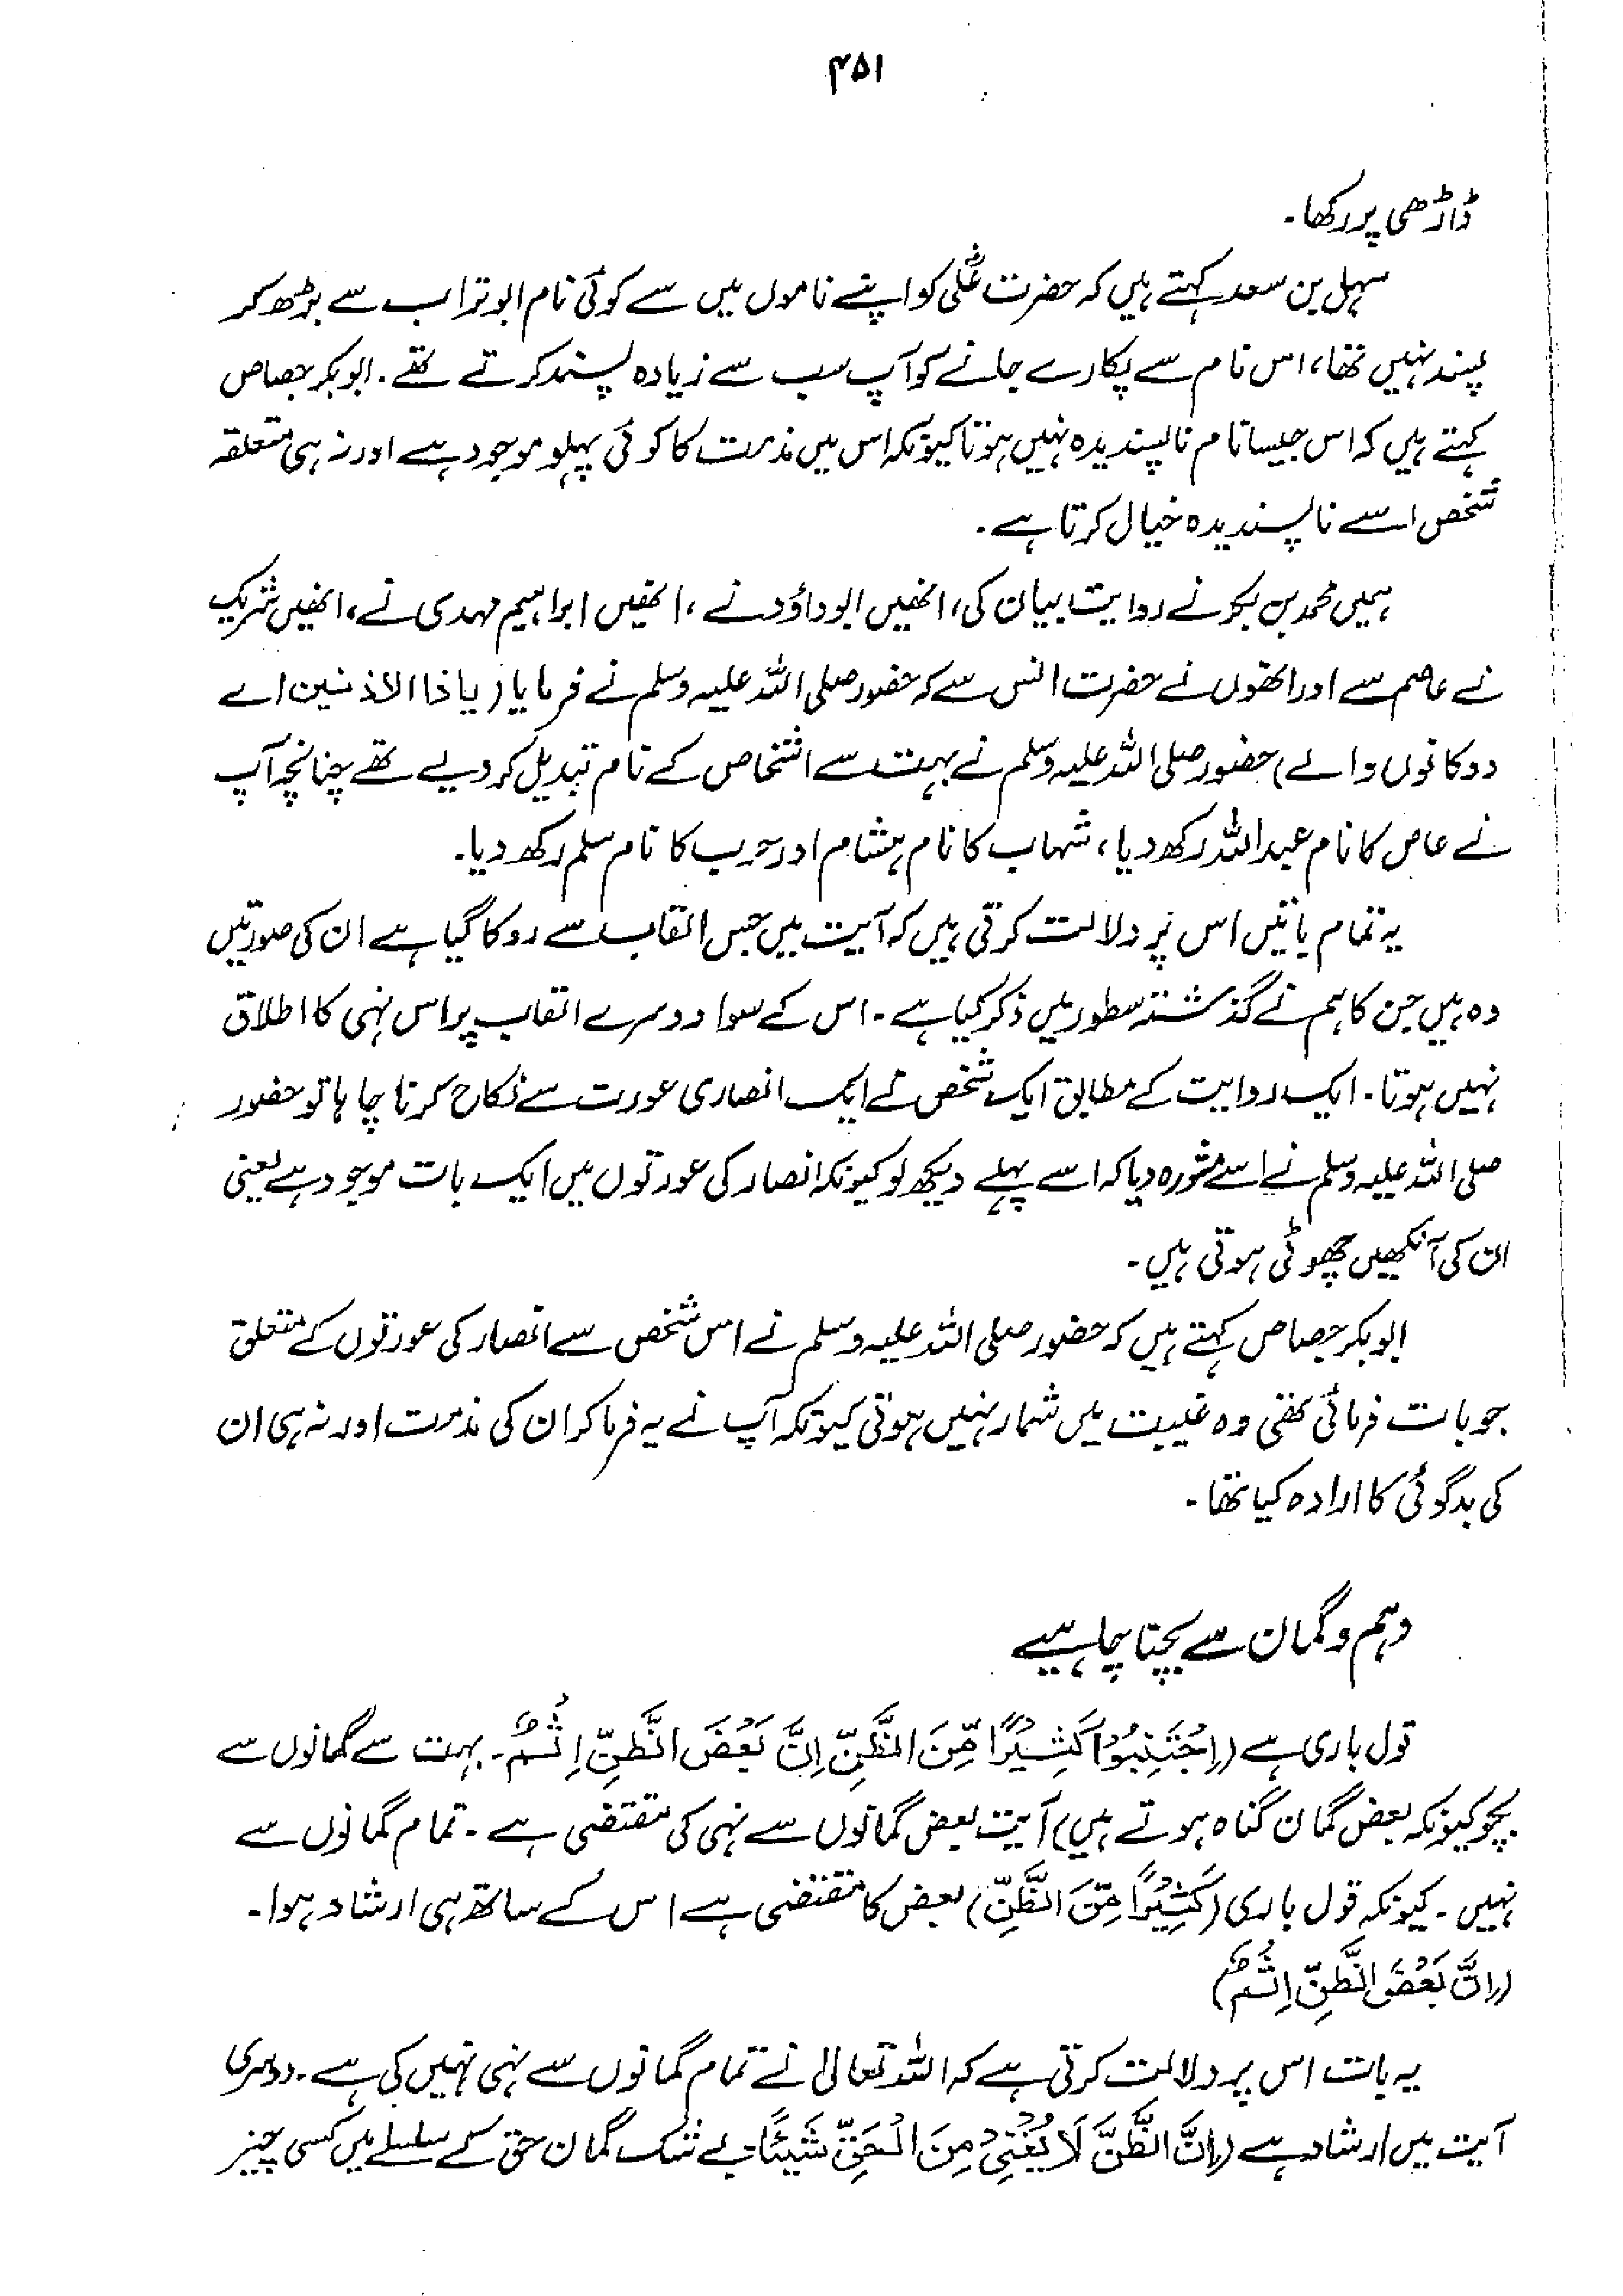 ۴۵۱
ڈاڑھی پر رکھا۔
سہل بن سعد کہتے ہیں کہ حضرت علیؓ کو اپنے ناموں میں سے کوئی نام ابو تراب سے بڑھ کر
پسند نہیں تھا، اس نام سے پکارے جانے کو آپ سب سے زیادہ پسند کرتے تھے۔ ابو بکر جصاص
کہتے ہیں کہ اس جیسا نام ناپسندیدہ نہیں ہوتا کیونکہ اس میں مذمت کا کوئی پہلو موجود ہے اور نہ ہی متعلقہ
شخص اسے ناپسندیدہ خیال کرتا ہے۔
ہمیں محمد بن بکر نے روایت بیان کی، انھیں ابو داؤد نے، انھیں ابراہیم مہدی نے، انھیں شریک
نے عاصم سے اور انھوں نے حضرت انس سے کہ حضور صلی اللہ علیہ وسلم نے فرمایا (یا ذا الاذنین اے
دو کانوں والے) حضور صلی اللہ علیہ وسلم نے بہت سے اشخاص کے نام تبدیل کر دیے تھے چنانچہ آپ
نے عاص کا نام عبداللہ رکھ دیا، شہاب کا نام ہشام اور حرب کا نام سلم رکھ دیا۔
یہ تمام باتیں اس پر دلالت کرتی ہیں کہ آیت میں جس القاب سے روکا گیا ہے ان کی صورتیں
وہ ہیں جن کا ہم نے گذشتہ سطور میں ذکر کیا ہے۔ اس کے سوا دوسرے القاب پر اس نہی کا اطلاق
نہیں ہوتا۔ ایک روایت کے مطابق ایک شخص نے ایک انصاری عورت سے نکاح کرنا چاہا تو حضور
صلی اللہ علیہ وسلم نے اسے مشورہ دیا کہ اسے پہلے دیکھ لو کیونکہ انصار کی عورتوں میں ایک بات موجود ہے یعنی
ان کی آنکھیں چھوٹی ہوتی ہیں۔
ابو بکر جصاص کہتے ہیں کہ حضور صلی اللہ علیہ وسلم نے اس شخص سے انصار کی عورتوں کے متعلق
جو بات فرمائی تھی وہ غیبت میں شمار نہیں ہوتی کیونکہ آپ نے یہ فرما کر ان کی مذمت اور نہ ہی ان
کی بدگوئی کا ارادہ کیا تھا۔
وہم و گمان سے بچنا چاہیے
قول باری ہے (اِجْتَنِبُوْا كَثِيْرًا مِّنَ الظَّنِّ اِنَّ بَعْضَ الظَّنِّ اِثْمٌ۔ بہت سے گمانوں سے
بچو کیونکہ بعض گمان گناہ ہوتے ہیں) آیت بعض گمانوں سے نہی کی مقتضی ہے۔ تمام گمانوں سے
نہیں۔ کیونکہ قول باری (كَثِيْرًا مِّنَ الظَّنِّ) بعض کا مقتضی ہے اس کے ساتھ ہی ارشاد ہوا۔
(اِنَّ بَعْضَ الظَّنِّ اِثْمٌ)
یہ بات اس پر دلالت کرتی ہے کہ اللہ تعالیٰ نے تمام گمانوں سے نہی نہیں کی ہے۔ دوسری
آیت میں ارشاد ہے (اِنَّ الظَّنَّ لَا يُغْنِيْ مِنَ الْحَقِّ شَيْئًا بے شک گمان حق کے سلسلے میں کسی چیز